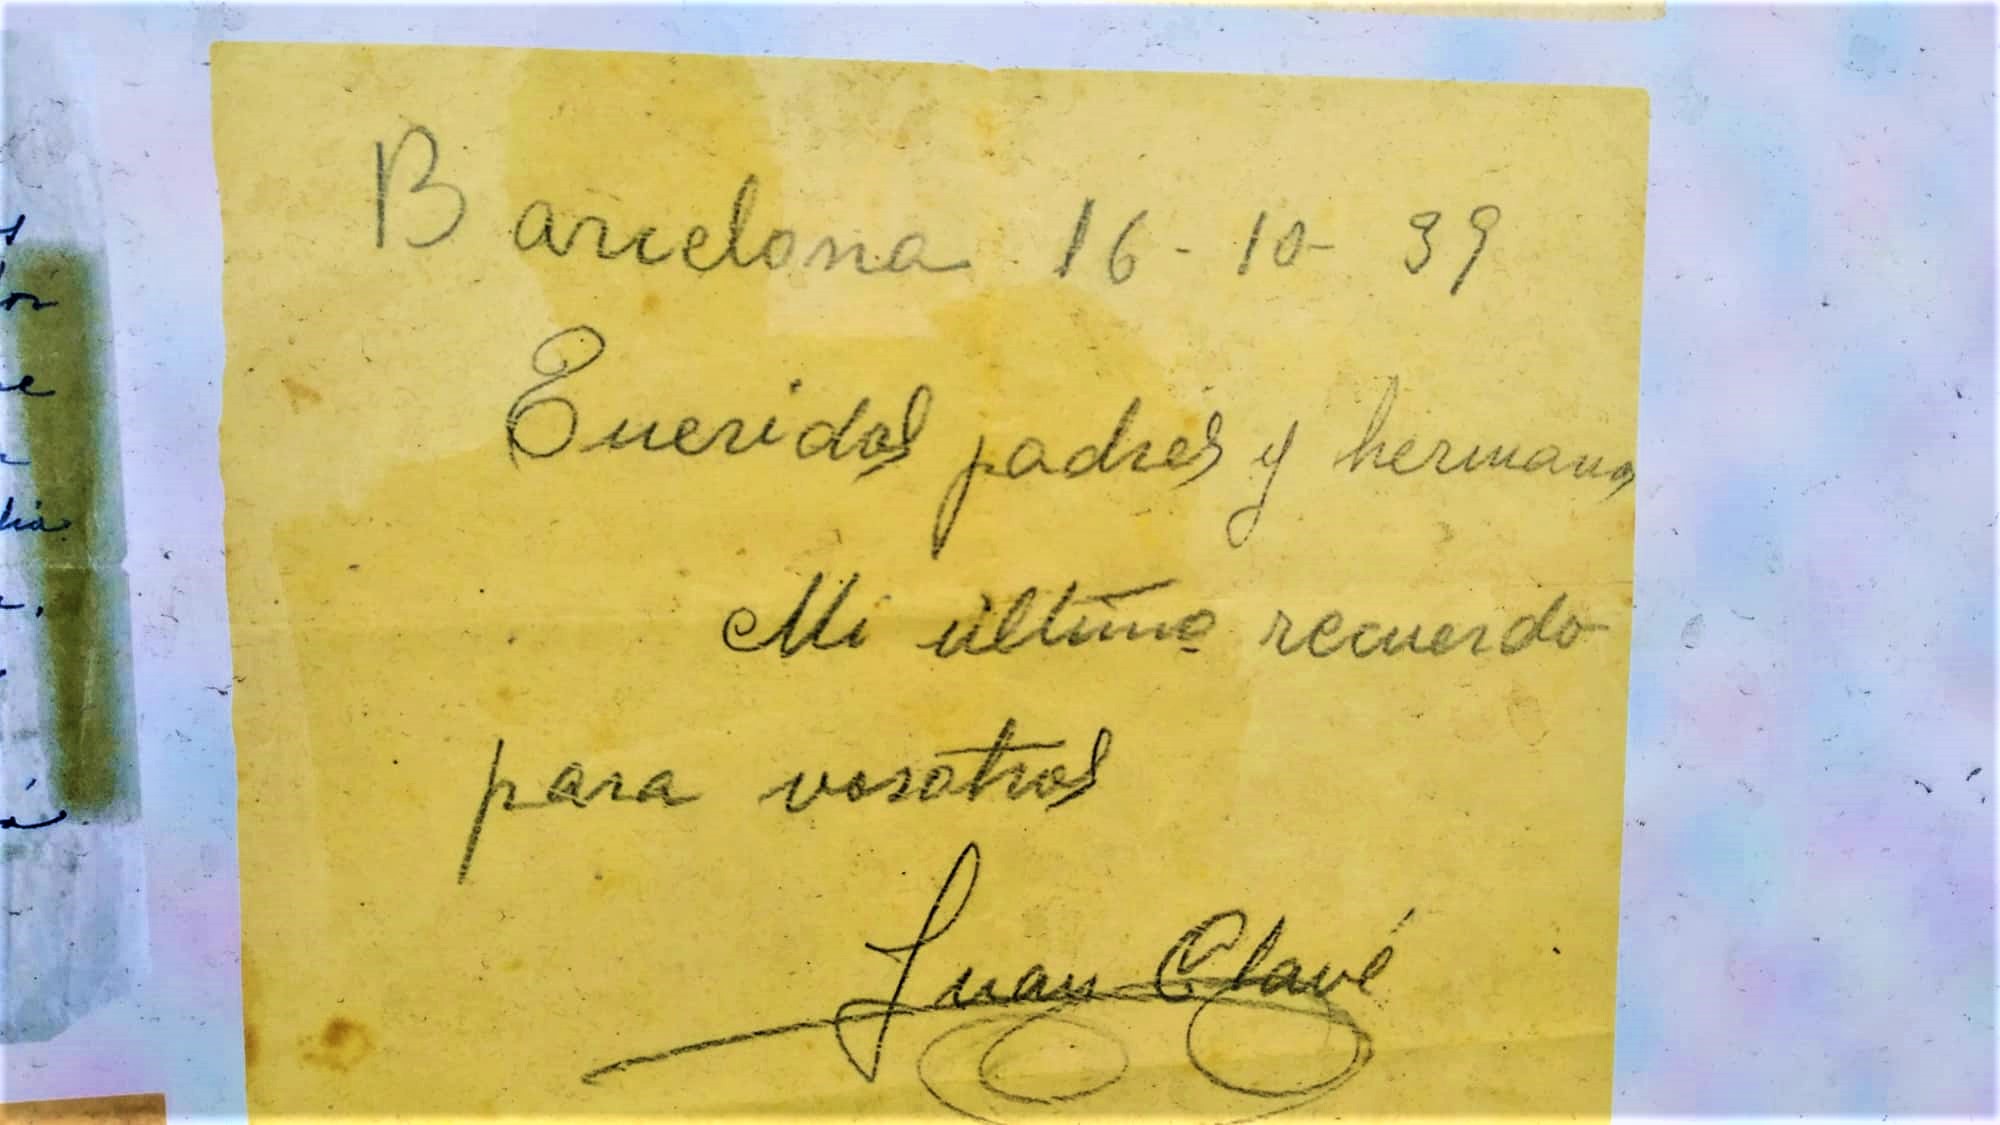 Barcelona 16-10-39
Queridos padres y hermanos
Mi último recuerdo
para vosotros
Juan Clavé